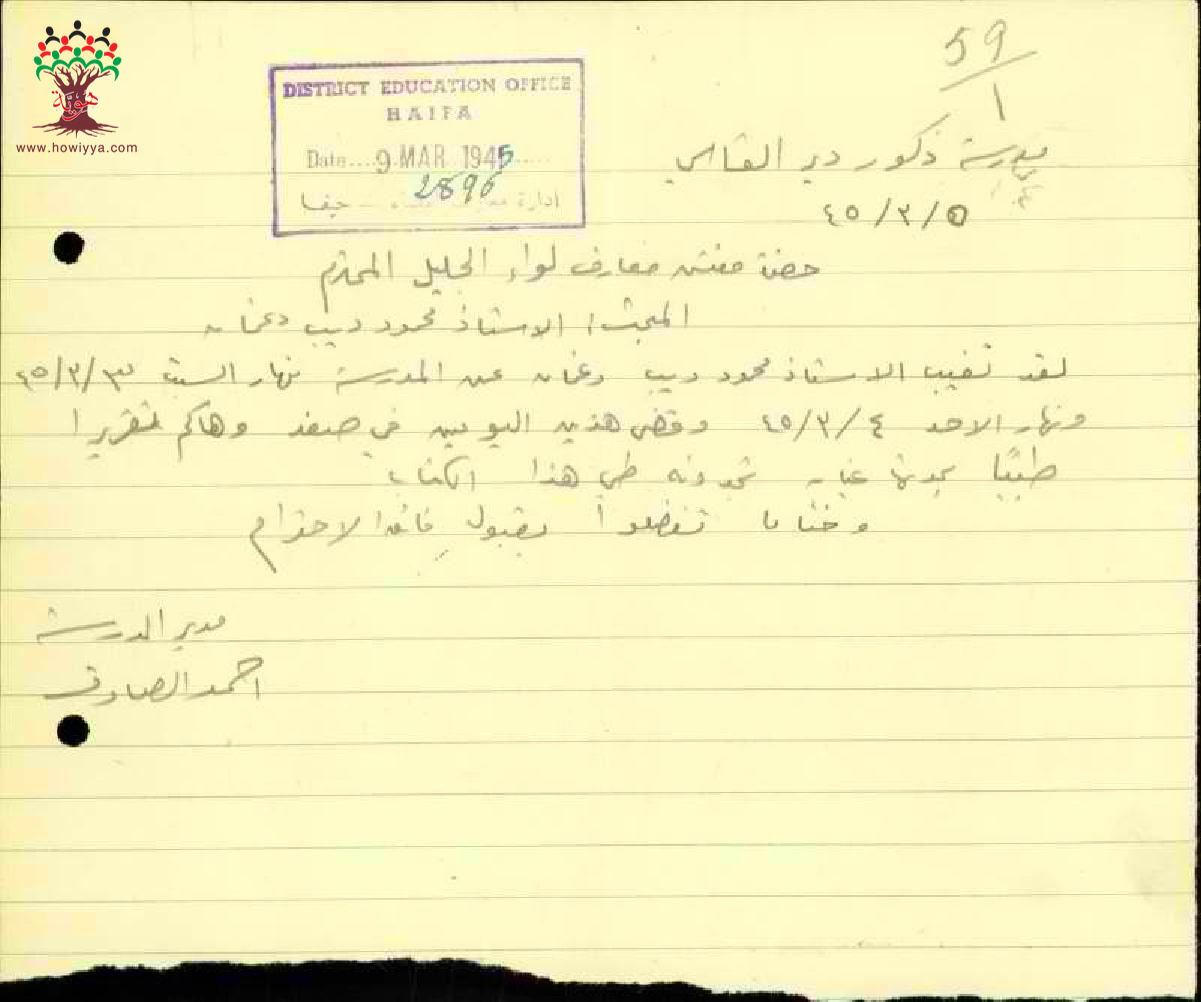 هوية
www.howiyya.com
DISTRICT EDUCATION OFFICE
HAIFA
Date....9 MAR 1945.....
2896
ادارة معارف - حيفا
59/1
مدرسة ذكور دير القاسي
٤٥/٣/٥
حضرة مفتش معارف لواء الجليل المحترم
المبحث: الاستاذ محمود ديب دغمان
لقد تغيب الاستاذ محمود ديب دغمان عن المدرسة نهار السبت ٤٥/٣/٣
ونهار الاحد ٤٥/٣/٤ وقضى هذين اليومين في صفد وهاكم تقريرا
طبيًا تجدونه طي هذا الكتاب
وختاما تفضلوا بقبول فائق الاحترام
مدير المدرسة
احمد الصادق